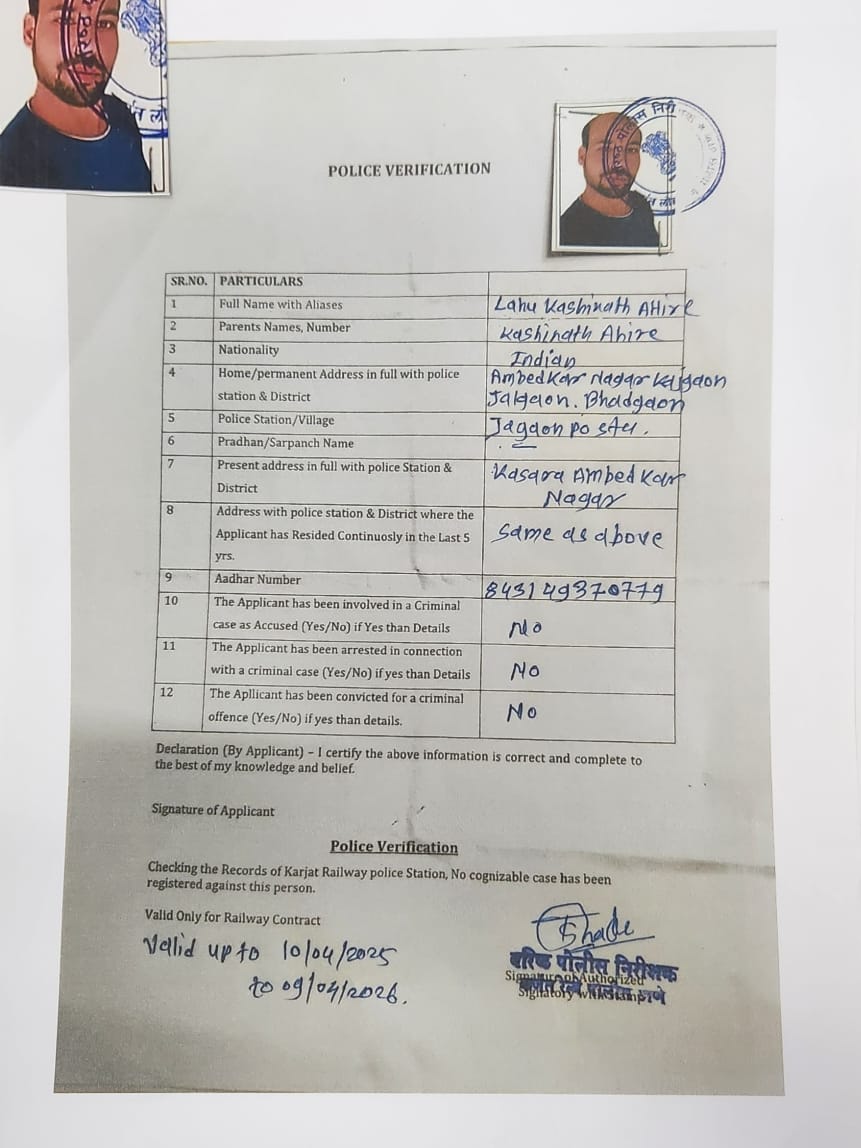 POLICE VERIFICATION
पोलीस निरी
SR.NO. PARTICULARS
1 Full Name with Aliases Lahu Kashinath AHire
2 Parents Names, Number Kashinath Ahire
3 Nationality Indian
4 Home/permanent Address in full with police Ambedkar Nagar
station & District Jalgaon. Bhadgaon
5 Police Station/Village Jagaon
6 Pradhan/Sarpanch Name
7 Present address in full with police Station & Kasara Ambedkar
District Nagar
8 Address with police station & District where the
Applicant has Resided Continuosly in the Last 5 Same as above
yrs.
9 Aadhar Number 843149370779
10 The Applicant has been involved in a Criminal
case as Accused (Yes/No) if Yes than Details No
11 The Applicant has been arrested in connection
with a criminal case (Yes/No) if yes than Details No
12 The Apllicant has been convicted for a criminal
offence (Yes/No) if yes than details. No
Declaration (By Applicant) – I certify the above information is correct and complete to
the best of my knowledge and belief.
Signature of Applicant
Police Verification
Checking the Records of Karjat Railway police Station, No cognizable case has been
registered against this person.
Valid Only for Railway Contract
Valid up to 10/04/2025
to 09/04/2026.
वरिष्ठ पोलीस निरीक्षक
Signature of Authorized
Signatory with Stamp